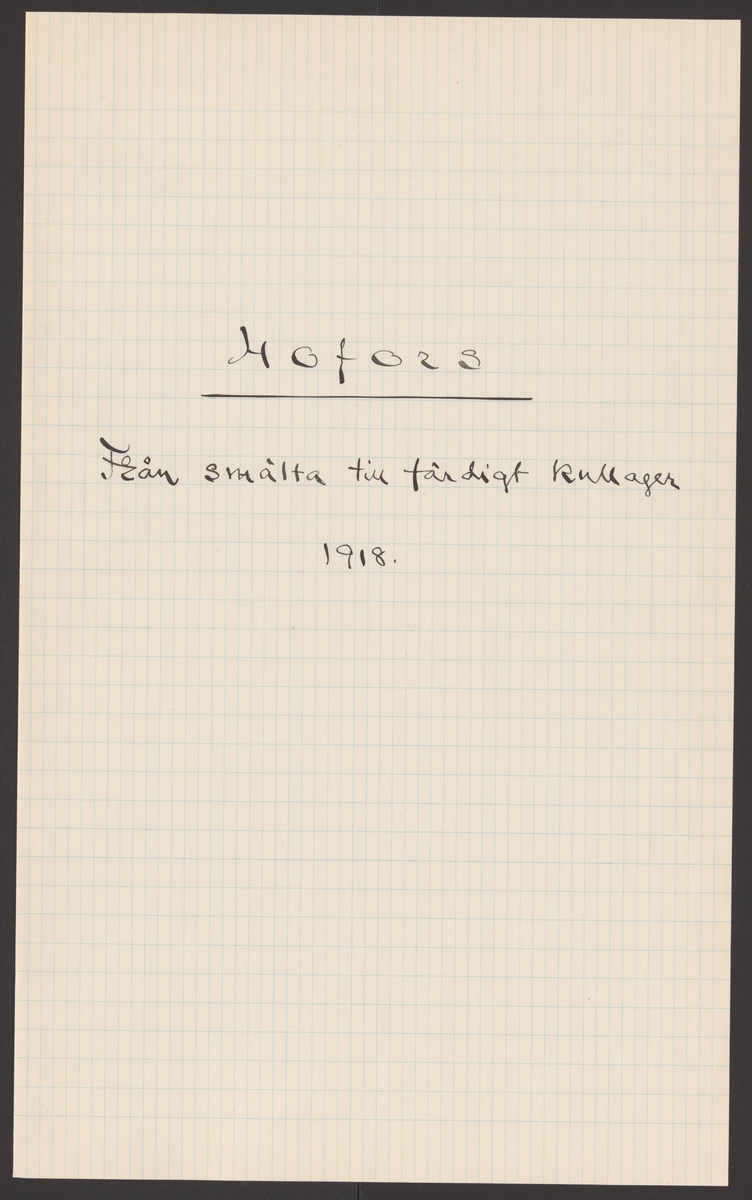 Hofors
Från smälta till färdigt kullager
1918.